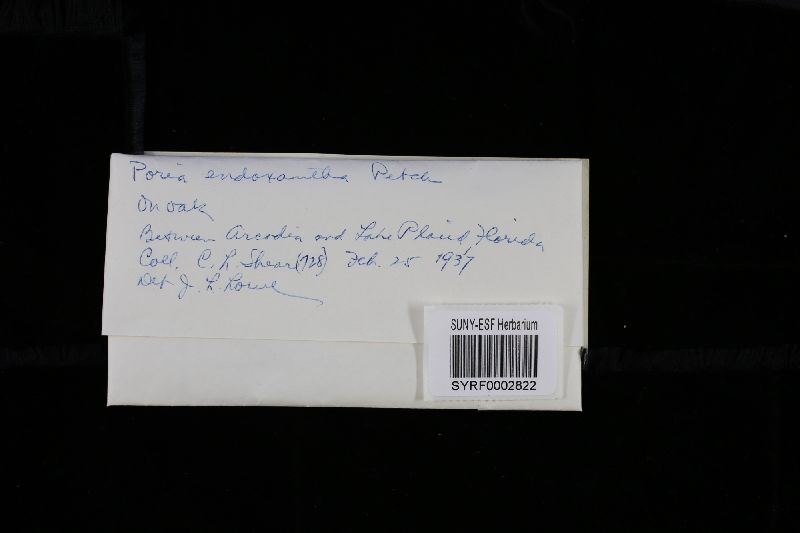 Poria endoxantha Petch
On oak
Between Arcadia and Lake Placid, Florida
Coll. C. L. Shear (728) Feb. 25 1937
Det J. L. Lowe
SUNY-ESF Herbarium
SYRF0002822